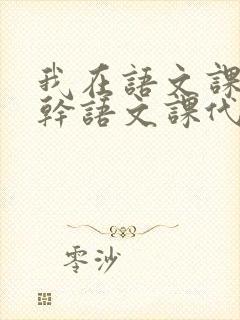 我在語文課
幹語文課代
零沙